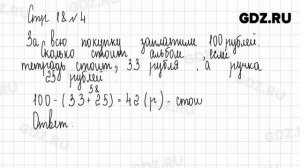 GDZ.RU
Стр 18 № 4
За всю покупку заплатили 100 рублей.
сколько стоит альбом, если
тетрадь стоит, 33 рубля, а ручка
25 рублей
58
100 - (33+25) = 42 (р) - стои
Ответ:
GDZ.RU